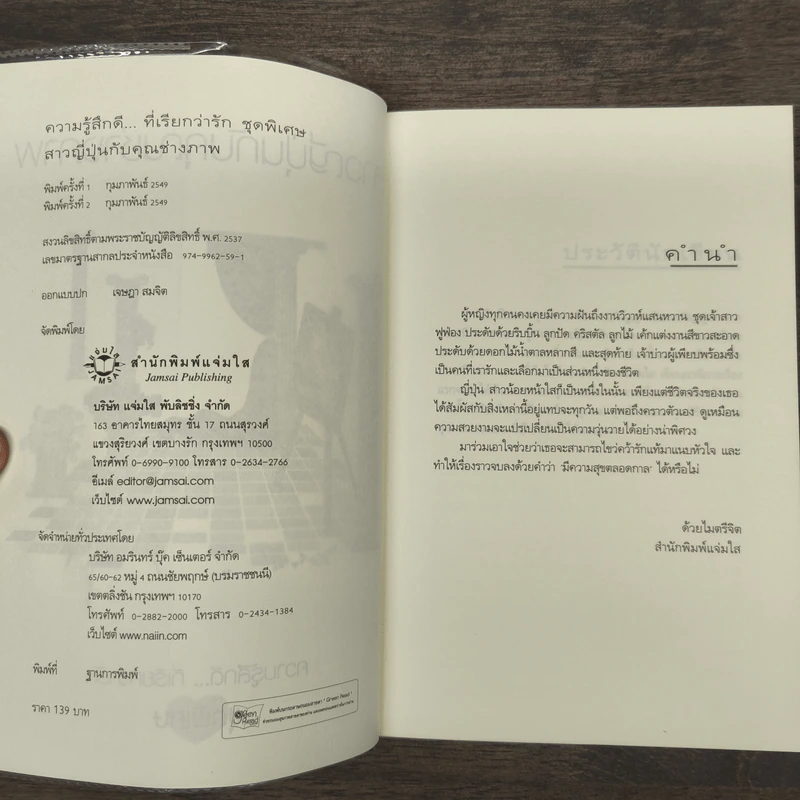 ความรู้สึกดี... ที่เรียกว่ารัก ชุดพิเศษ
สาวญี่ปุ่นกับคุณช่างภาพ
พิมพ์ครั้งที่ 1 กุมภาพันธ์ 2549
พิมพ์ครั้งที่ 2 กุมภาพันธ์ 2549
สงวนลิขสิทธิ์ตามพระราชบัญญัติลิขสิทธิ์ พ.ศ. 2537
เลขมาตรฐานสากลประจำหนังสือ 974-9962-59-1
ออกแบบปก เจษฎา สมจิต
จัดพิมพ์โดย
แจ่มใส
JAMSAI
สำนักพิมพ์แจ่มใส
Jamsai Publishing
บริษัท แจ่มใส พับลิชชิ่ง จำกัด
163 อาคารไทยสมุทร ชั้น 17 ถนนสุรวงศ์
แขวงสุริยวงศ์ เขตบางรัก กรุงเทพฯ 10500
โทรศัพท์ 0-6990-9100 โทรสาร 0-2634-2766
อีเมล์ editor@jamsai.com
เว็บไซต์ www.jamsai.com
จัดจำหน่ายทั่วประเทศโดย
บริษัท อมรินทร์ บุ๊ค เซ็นเตอร์ จำกัด
65/60-62 หมู่ 4 ถนนชัยพฤกษ์ (บรมราชชนนี)
เขตตลิ่งชัน กรุงเทพฯ 10170
โทรศัพท์ 0-2882-2000 โทรสาร 0-2434-1384
เว็บไซต์ www.naiin.com
พิมพ์ที่ ฐานการพิมพ์
ราคา 139 บาท
Green Read
พิมพ์บนกระดาษถนอมสายตา "Green Read"
คำนำ
ผู้หญิงทุกคนคงเคยมีความฝันถึงงานวิวาห์แสนหวาน ชุดเจ้าสาว
ฟูฟ่อง ประดับด้วยริบบิ้น ลูกปัด คริสตัล ลูกไม้ เค้กแต่งงานสีขาวสะอาด
ประดับด้วยดอกไม้น้ำตาลหลากสี และสุดท้าย เจ้าบ่าวผู้เพียบพร้อมซึ่ง
เป็นคนที่เรารักและเลือกมาเป็นส่วนหนึ่งของชีวิต
ญี่ปุ่น สาวน้อยหน้าใสก็เป็นหนึ่งในนั้น เพียงแต่ชีวิตจริงของเธอ
ได้สัมผัสกับสิ่งเหล่านี้อยู่แทบจะทุกวัน แต่พอถึงคราวตัวเอง ดูเหมือน
ความสวยงามจะแปรเปลี่ยนเป็นความวุ่นวายได้อย่างน่าพิศวง
มาร่วมเอาใจช่วยว่าเธอจะสามารถไขว่คว้ารักแท้มาแนบหัวใจ และ
ทำให้เรื่องราวจบลงด้วยคำว่า 'มีความสุขตลอดกาล' ได้หรือไม่
ด้วยไมตรีจิต
สำนักพิมพ์แจ่มใส